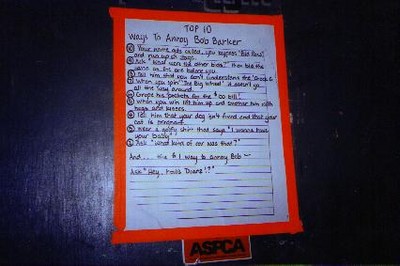 TOP 10
Ways To Annoy Bob Barker
Your name gets called, you
and run up on stage.
Ask "What were the other bids?" then bid the
same as the one before you.
Tell him that you don't understand the
When you spin "The Big Wheel" it doesn't go
all the way around.
Grope his pockets for the $100 bill!
When you win lift him up and smother him with
hugs and kisses.
Tell him that your dog isn't fixed and that your
cat is pregnant.
Wear a goofy shirt that says "I wanna have
your Baby"!
Ask "What kind of car was that?"
And.... the # 1 way to annoy Bob -
Ask "Hey, how's Diane!?"
ASPCA